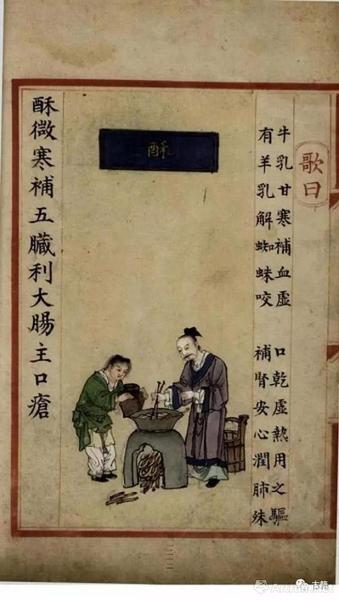 歌曰
牛乳甘寒補血虛 口乾虛熱用之驅
有羊乳解蜘蛛咬 補腎安心潤肺殊
酥
酥微寒補五臟利大腸主口瘡